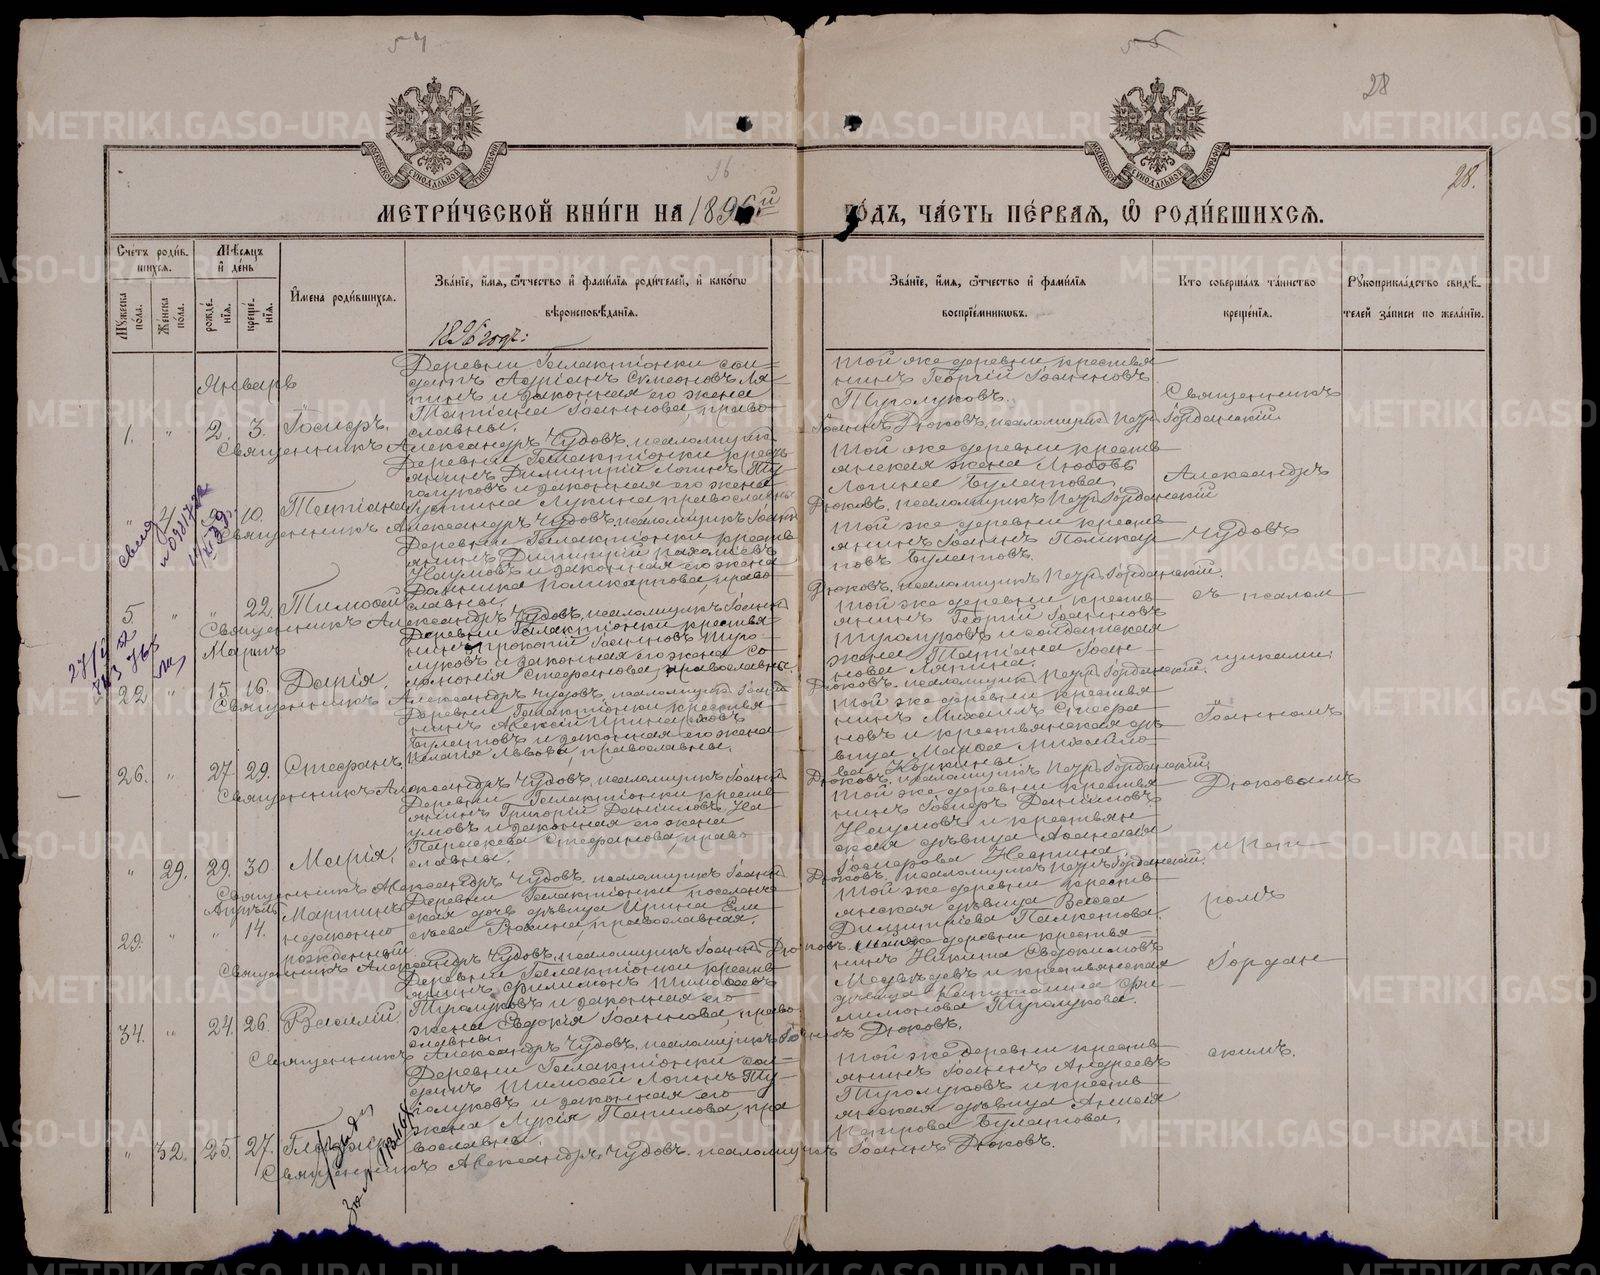 54
55
28
28.
МЕТРИ́ЧЕСКОЙ КНИ́ГИ НА 1896й
ГО́ДЪ, ЧА́СТЬ ПЕ́РВАЯ, Ѡ РОДИ́ВШИХСЯ.
Сче́тъ роди́в-
шихся.
Мꙋжеска по́ла.
Же́нска по́ла.
Мѣ́сяцъ и де́нь
рожде́-
нїя.
креще́-
нїя.
Имена роди́вшихся.
Зва́нїе, и́мя, ѻ́тчество и фами́лїя роди́телей, и како́гѡ
вѣроисповѣ́данїя.
Зва́нїе, и́мя, ѻ́тчество и фами́лїя
воспрїе́мникѡвъ.
Кто соверша́лъ та́инство
креще́нїя.
Рꙋкоприкла́дство свидѣ́-
телей за́писи по жела́нїю.
1896 годъ:
Январь
1. " 2. 3.
Деревни Галактіонки сол-
датъ Адріанъ Сѵмеоновъ Ля-
пинъ и законная его жена
Татіана Іоаннова, право-
славны.
Той же деревни крестья
нинъ Георгій Іоанновъ
Туголуковъ.
Священникъ Александръ Чудовъ, псаломщикъ
Іоаннъ Дюковъ, псаломщикъ Петръ Іорданскій.
" 4 10. Татіана
Деревни Галактіонки кресть
янинъ Димитрій Логинъ Ту-
голуковъ и законная его жена
Іустина Лукина, православны
Той же деревни кресть
янская жена Любовь
Логина Булатова
Священникъ Александръ Чудовъ, псаломщикъ Іоаннъ
Дюковъ, псаломщикъ Петръ Іорданскій
5. " " 22. Тимоѳей
Деревни Галактіонки кресть
янинъ Димитрій
Наумовъ и законная его жена
Поликарпова, право
славны.
Той же деревни кресть
янинъ Іоаннъ Поликар
повъ Булатовъ.
Священникъ Александръ Чудовъ, псаломщикъ Іоаннъ
Дюковъ, псаломщикъ Петръ Іорданскій.
Мартъ
22. " 15. 16.
Деревни Галактіонки крестья
нинъ Прокопій Іоанновъ Туго-
луковъ и законная его жена Со
ломонія Стефанова, православны.
Той же деревни кресть
янинъ Георгій Іоанновъ
Туголуковъ и солдатская
жена Татіана Іоан
нова Ляпина.
Священникъ Александръ Чудовъ, псаломщикъ Іоаннъ
Дюковъ, псаломщикъ Петръ Іорданскій.
26. " 27 29. Стефанъ
Деревни Галактіонки крестья
нинъ Алексій
Булатовъ и законная его жена
Пелагія Львова, православны.
Той же деревни крестья
нинъ Михаилъ
новъ и крестьянская дѣ
вица Михайло
ва Коркина
Священникъ Александръ Чудовъ, псаломщикъ Іоаннъ
Дюковъ, псаломщикъ Петръ Іорданскій.
" 29. 29. 30 Марія,
Деревни Галактіонки кресть
янинъ Григорій Даніиловъ На
умовъ и законная его жена
Параскева Стефанова, право
славны.
Той же деревни крестья
нинъ Даніиловъ
Наумовъ и крестьян
ская дѣвица Аѳанасія
Священникъ Александръ Чудовъ, псаломщикъ Іоаннъ
Дюковъ, псаломщикъ Петръ Іорданскій.
Апрѣль
29. " " 14. Мартинъ
незаконно
рожденный
Деревни Галактіонки поселенче
ская дочь дѣвица Ирина Ели
сѣева православная.
Той же деревни кресть
янская дѣвица Васса
Димитріева
Священникъ Александръ Чудовъ, псаломщикъ Іоаннъ Дюковъ.
34. " 24. 26. Василій
Деревни Галактіонки кресть
янинъ Филимонъ Тимоѳеевъ
Туголуковъ и законная его
жена Евдокія Іоаннова, право
славны.
Той же деревни крестья-
нинъ Никита Евдокимовъ
Медвѣдевъ и крестьянская
дѣвица Капитолина Фи
лимонова Туголукова.
Священникъ Александръ Чудовъ, псаломщикъ Іоаннъ Дюковъ.
" 32. 25. 27.
Деревни Галактіонки сол-
датъ Тимоѳей Логинъ Ту-
голуковъ и законная его
жена Лукія, пра
вославны.
Той же деревни кресть
янинъ Іоаннъ Андреевъ
Туголуковъ и кресть
янская дѣвица Анисія
Петрова Булатова.
Священникъ Александръ Чудовъ. псаломщикъ Іоаннъ Дюковъ.
Священникъ
Александръ
Чудовъ
съ псалом
щиками:
Іоанномъ
Дюковымъ
и Пет-
ромъ
Іордан
скимъ.
METRIKI.GASO-URAL.RU